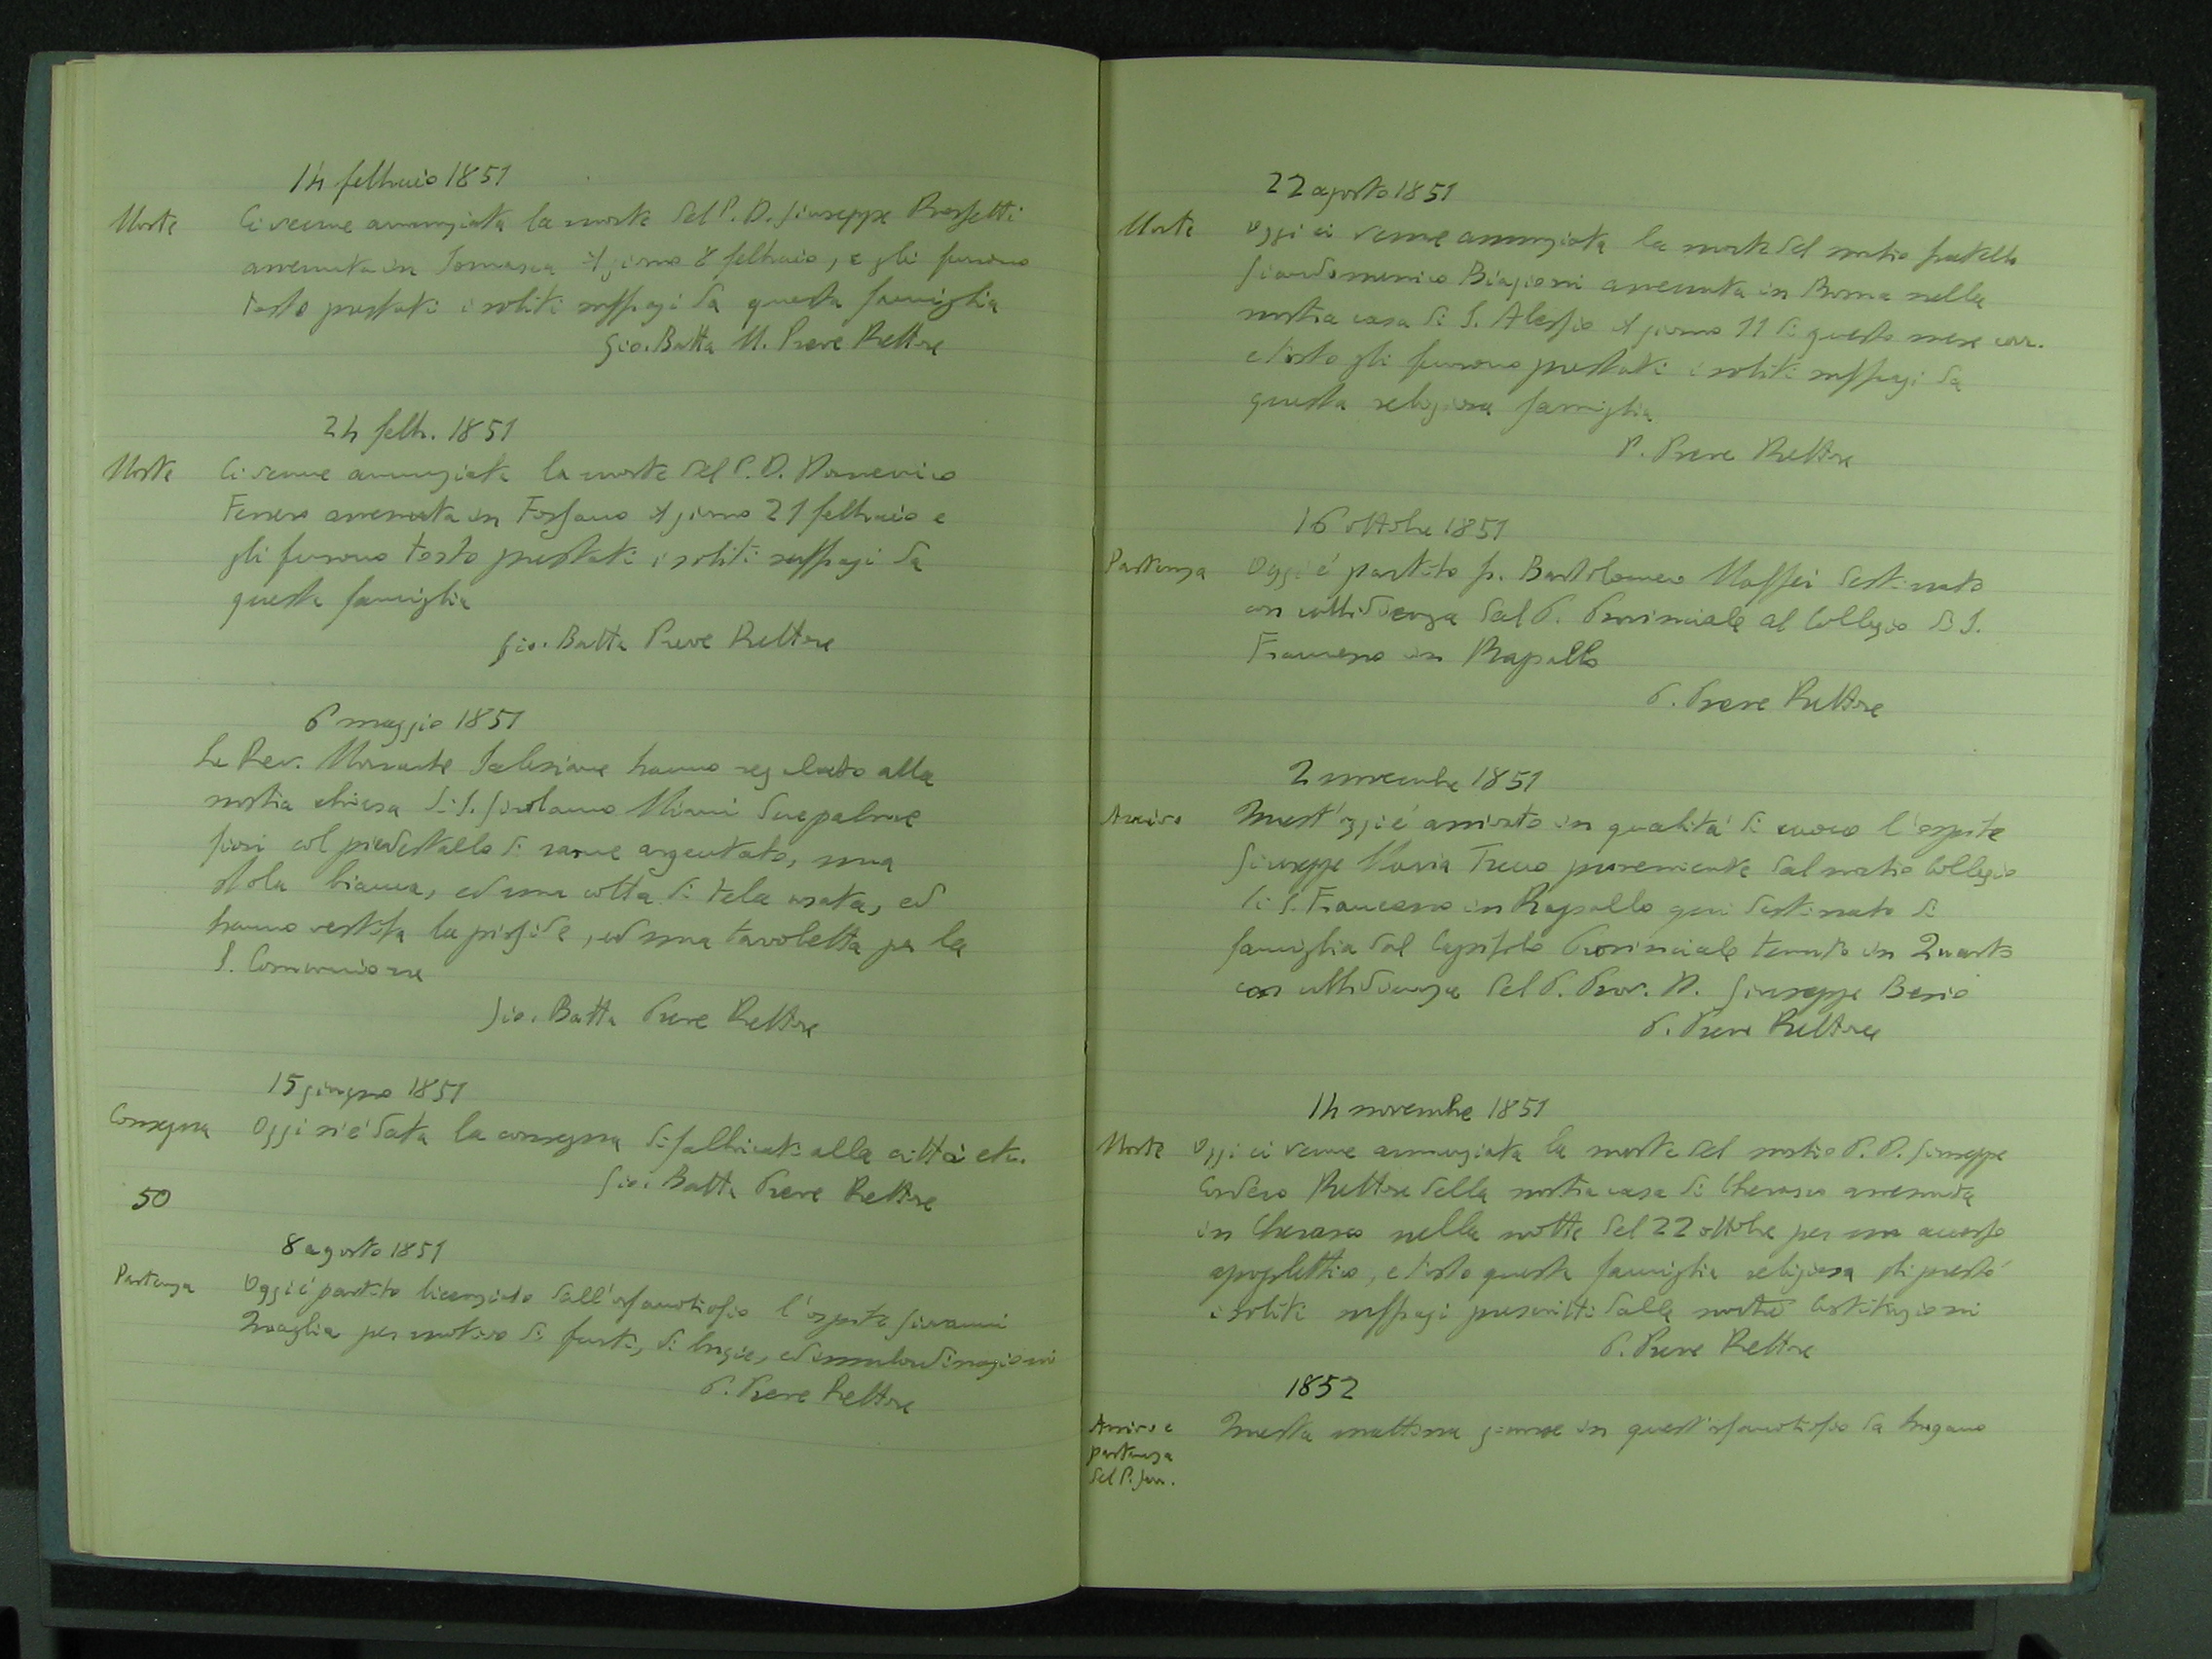 14 febbraio 1851
Morte
Ci venne annunziata la morte del P. D. Giuseppe
avvenuta in Somasca il giorno 8 febbraio, e gli furono
tosto prestati i soliti suffragi da questa famiglia
Gio. Batta M. Preve Rettore
24 febb. 1851
Morte
Ci venne annunziata la morte del P. D. Domenico
Ferrero avvenuta in Fossano il giorno 21 febbraio e
gli furono tosto prestati i soliti suffragi da
questa famiglia
Gio. Batta Preve Rettore
6 maggio 1851
Le Rev. Monache Salesiane hanno regalato alla
nostra chiesa di S. Girolamo Miani due palme
fiori col piedestallo di rame argentato, una
stola bianca, ed una cotta di tela usata, ed
hanno vestita la pisside, ed una tavoletta per la
S. Comunione
Gio. Batta Preve Rettore
15 giugno 1851
Consegna
Oggi si é data la consegna di fabbricati alla cittá etc.
Gio. Batta Preve Rettore
50
8 agosto 1851
Partenza
Oggi é partito licenziato dall'orfanotrofio l'ospite Giovanni
Quaglia per motivo di furti, di bugie, ed insubordinazioni
P. Preve Rettore
22 agosto 1851
Morte
Oggi ci venne annunziata la morte del nostro fratello
Giandomenico Biagioni avvenuta in Roma nella
nostra casa di S. Alessio il giorno 11 di questo mese corr.
e tosto gli furono prestati i soliti suffragi da
questa religiosa famiglia
P. Preve Rettore
16 ottobre 1851
Partenza
Oggi é partito fr. Bartolomeo Maffei destinato
con ubbidienza dal P. Provinciale al Collegio di S.
Francesco in Rapallo
P. Preve Rettore
2 novembre 1851
Arrivo
Quest'oggi é arrivato in qualitá di cuoco l'ospite
Giuseppe Maria proveniente dal nostro Collegio
di S. Francesco in Rapallo qui destinato di
famiglia dal Capitolo Provinciale tenuto in Quarto
con ubbidienza del P. Prov. D. Giuseppe Besio
P. Preve Rettore
14 novembre 1851
Morte
Oggi ci venne annunziata la morte del nostro P. D. Giuseppe
Cordero Rettore della nostra casa di Cherasco avvenuta
in Cherasco nella notte del 22 ottobre per un accesso
apoplettico, e tosto questa famiglia religiosa gli prestó
i soliti suffragi prescritti dalle nostre Costituzioni
P. Preve Rettore
1852
Arrivo e
partenza
del P. Gen.
Questa mattina giunse in quest'orfanotrofio da Lugano